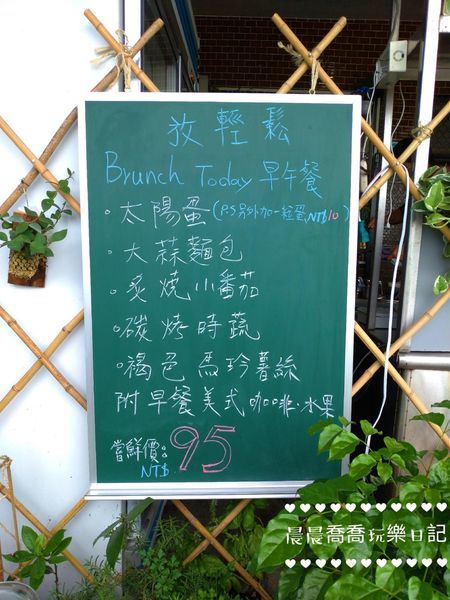 放輕鬆
Brunch Today 早午餐
·太陽蛋(P.S另外加一粒蛋,NT$10)
·大蒜麵包
·炙燒小番茄
·碳烤時蔬
·褐色馬玲薯絲
附早餐美式咖啡·水果
嘗鮮價:
NT$ 95
晨晨喬喬玩樂日記